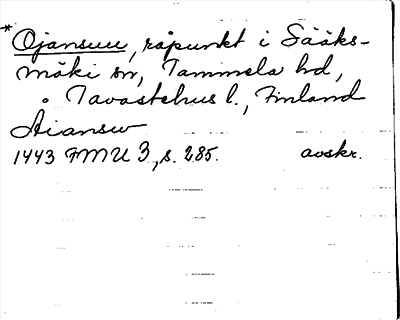 * Ojansuu, råpunkt i Sääks-
mäki sn, Tammela hd,
o Tavastehus l., Finland
Aiansw
1443 FMU 3, s. 285. avskr.